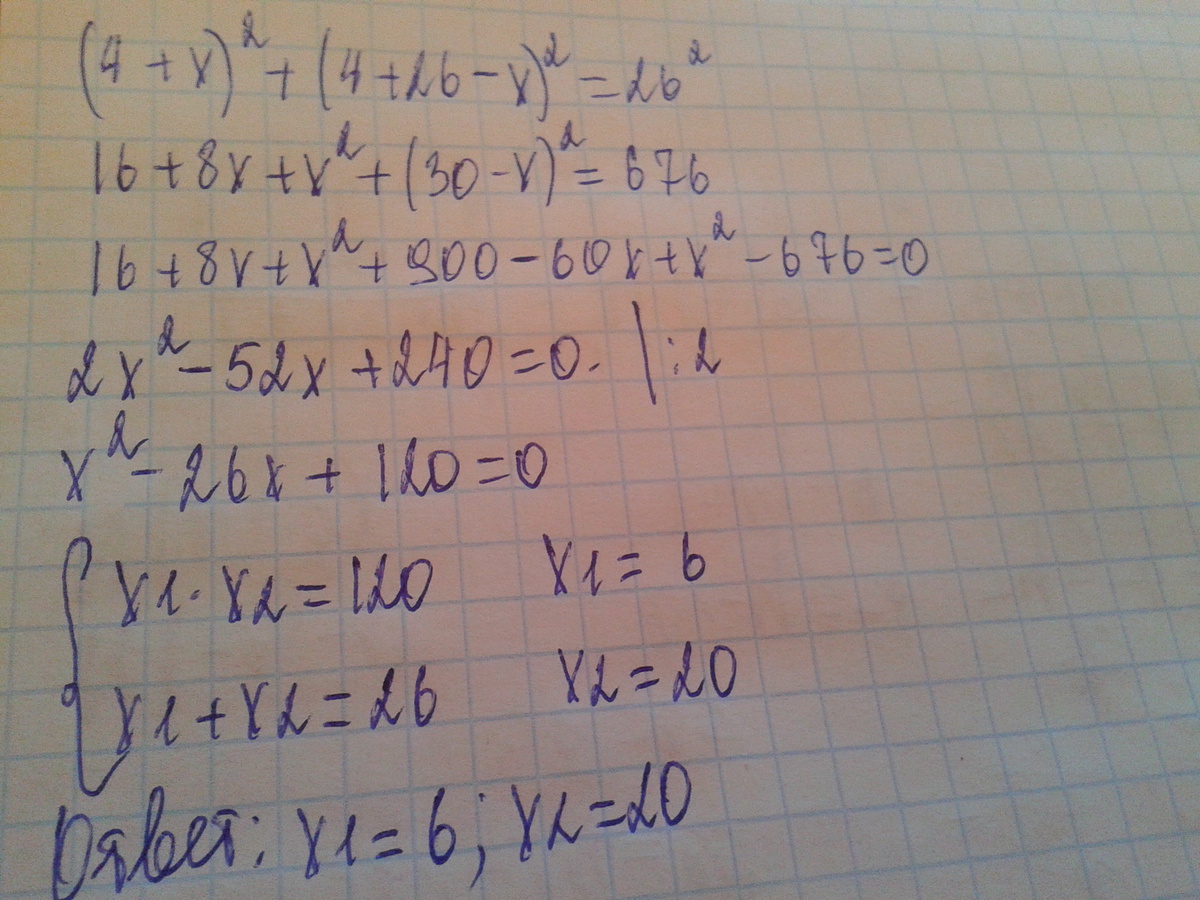 (4 + x)² + (4 + 26 - x)² = 26²
16 + 8x + x² + (30 - x)² = 676
16 + 8x + x² + 900 - 60x + x² - 676 = 0
2x² - 52x + 240 = 0. | : 2
x² - 26x + 120 = 0
x1 · x2 = 120 x1 = 6
x1 + x2 = 26 x2 = 20
Ответ: x1 = 6; x2 = 20